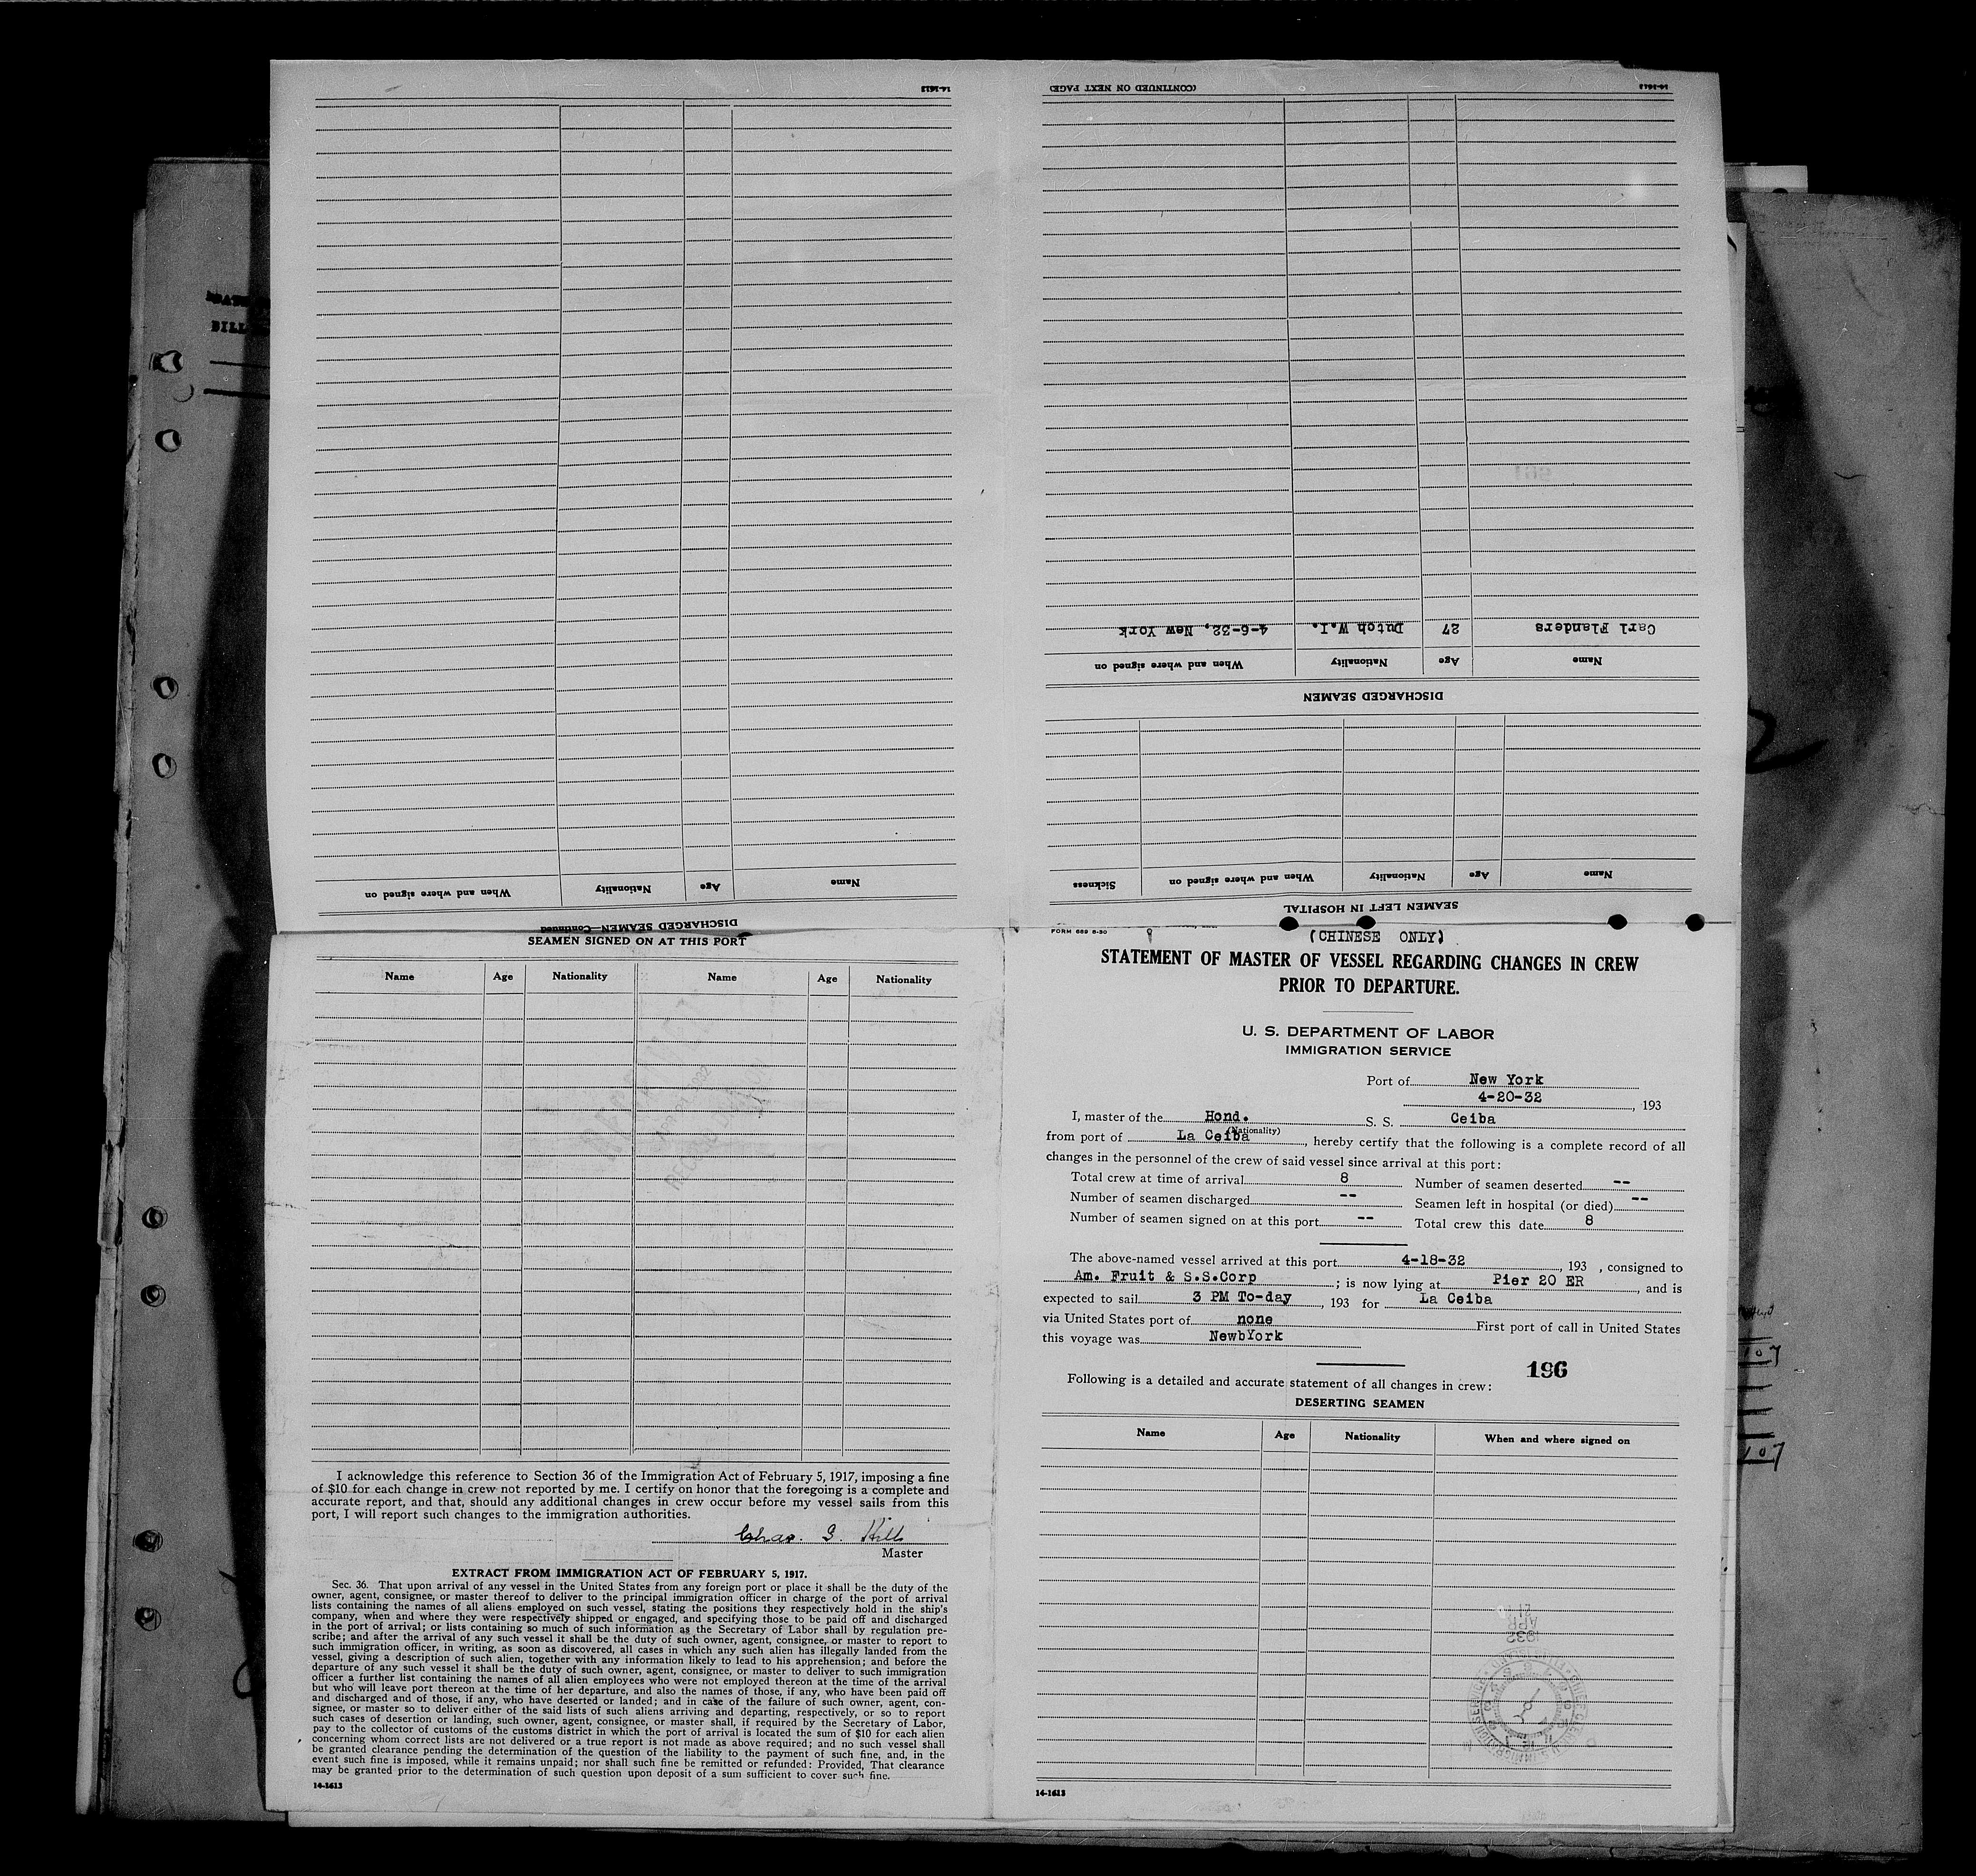 14-1613
(CONTINUED ON NEXT PAGE)
14-1613
Carl Flanders 27 Dutch W.I. 4-6-32, New York
Name Age Nationality When and where signed on
DISCHARGED SEAMEN
Name Age Nationality When and where signed on Sickness
SEAMEN LEFT IN HOSPITAL
Name Age Nationality When and where signed on
DISCHARGED SEAMEN—Continued
SEAMEN SIGNED ON AT THIS PORT
Name Age Nationality Name Age Nationality
I acknowledge this reference to Section 36 of the Immigration Act of February 5, 1917, imposing a fine
of $10 for each change in crew not reported by me. I certify on honor that the foregoing is a complete and
accurate report, and that, should any additional changes in crew occur before my vessel sails from this
port, I will report such changes to the immigration authorities.
Chas. G. Hill
Master
EXTRACT FROM IMMIGRATION ACT OF FEBRUARY 5, 1917.
Sec. 36. That upon arrival of any vessel in the United States from any foreign port or place it shall be the duty of the
owner, agent, consignee, or master thereof to deliver to the principal immigration officer in charge of the port of arrival
lists containing the names of all aliens employed on such vessel, stating the positions they respectively hold in the ship's
company, when and where they were respectively shipped or engaged, and specifying those to be paid off and discharged
in the port of arrival; or lists containing so much of such information as the Secretary of Labor shall by regulation pre-
scribe; and after the arrival of any such vessel it shall be the duty of such owner, agent, consignee, or master to report to
such immigration officer, in writing, as soon as discovered, all cases in which any such alien has illegally landed from the
vessel, giving a description of such alien, together with any information likely to lead to his apprehension; and before the
departure of any such vessel it shall be the duty of such owner, agent, consignee, or master to deliver to such immigration
officer a further list containing the names of all alien employees who were not employed thereon at the time of the arrival
but who will leave port thereon at the time of her departure, and also the names of those, if any, who have been paid off
and discharged and of those, if any, who have deserted or landed; and in case of the failure of such owner, agent, con-
signee, or master so to deliver either of the said lists of such aliens arriving and departing, respectively, or so to report
such cases of desertion or landing, such owner, agent, consignee, or master shall, if required by the Secretary of Labor,
pay to the collector of customs of the customs district in which the port of arrival is located the sum of $10 for each alien
concerning whom correct lists are not delivered or a true report is not made as above required; and no such vessel shall
be granted clearance pending the determination of the question of the liability to the payment of such fine, and, in the
event such fine is imposed, while it remains unpaid; nor shall such fine be remitted or refunded: Provided, That clearance
may be granted prior to the determination of such question upon deposit of a sum sufficient to cover such fine.
14-1613
FORM 689 8-30
(CHINESE ONLY)
STATEMENT OF MASTER OF VESSEL REGARDING CHANGES IN CREW
PRIOR TO DEPARTURE.
U. S. DEPARTMENT OF LABOR
IMMIGRATION SERVICE
Port of New York
4-20-32, 193
I, master of the Hond. S. S. Ceiba
(Nationality)
from port of La Ceiba, hereby certify that the following is a complete record of all
changes in the personnel of the crew of said vessel since arrival at this port:
Total crew at time of arrival 8 Number of seamen deserted --
Number of seamen discharged -- Seamen left in hospital (or died) --
Number of seamen signed on at this port -- Total crew this date 8
The above-named vessel arrived at this port 4-18-32, 193 , consigned to
Am. Fruit & S.S.Corp ; is now lying at Pier 20 ER, and is
expected to sail 3 PM To-day, 193 for La Ceiba
via United States port of none First port of call in United States
this voyage was NewbYork
196
Following is a detailed and accurate statement of all changes in crew:
DESERTING SEAMEN
Name Age Nationality When and where signed on
14-1613
BILL
107
107